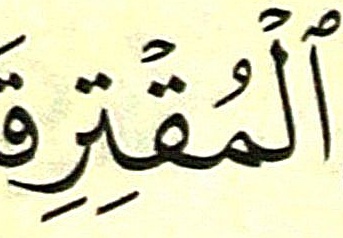 ٱلْمُقْتِرِ قَ